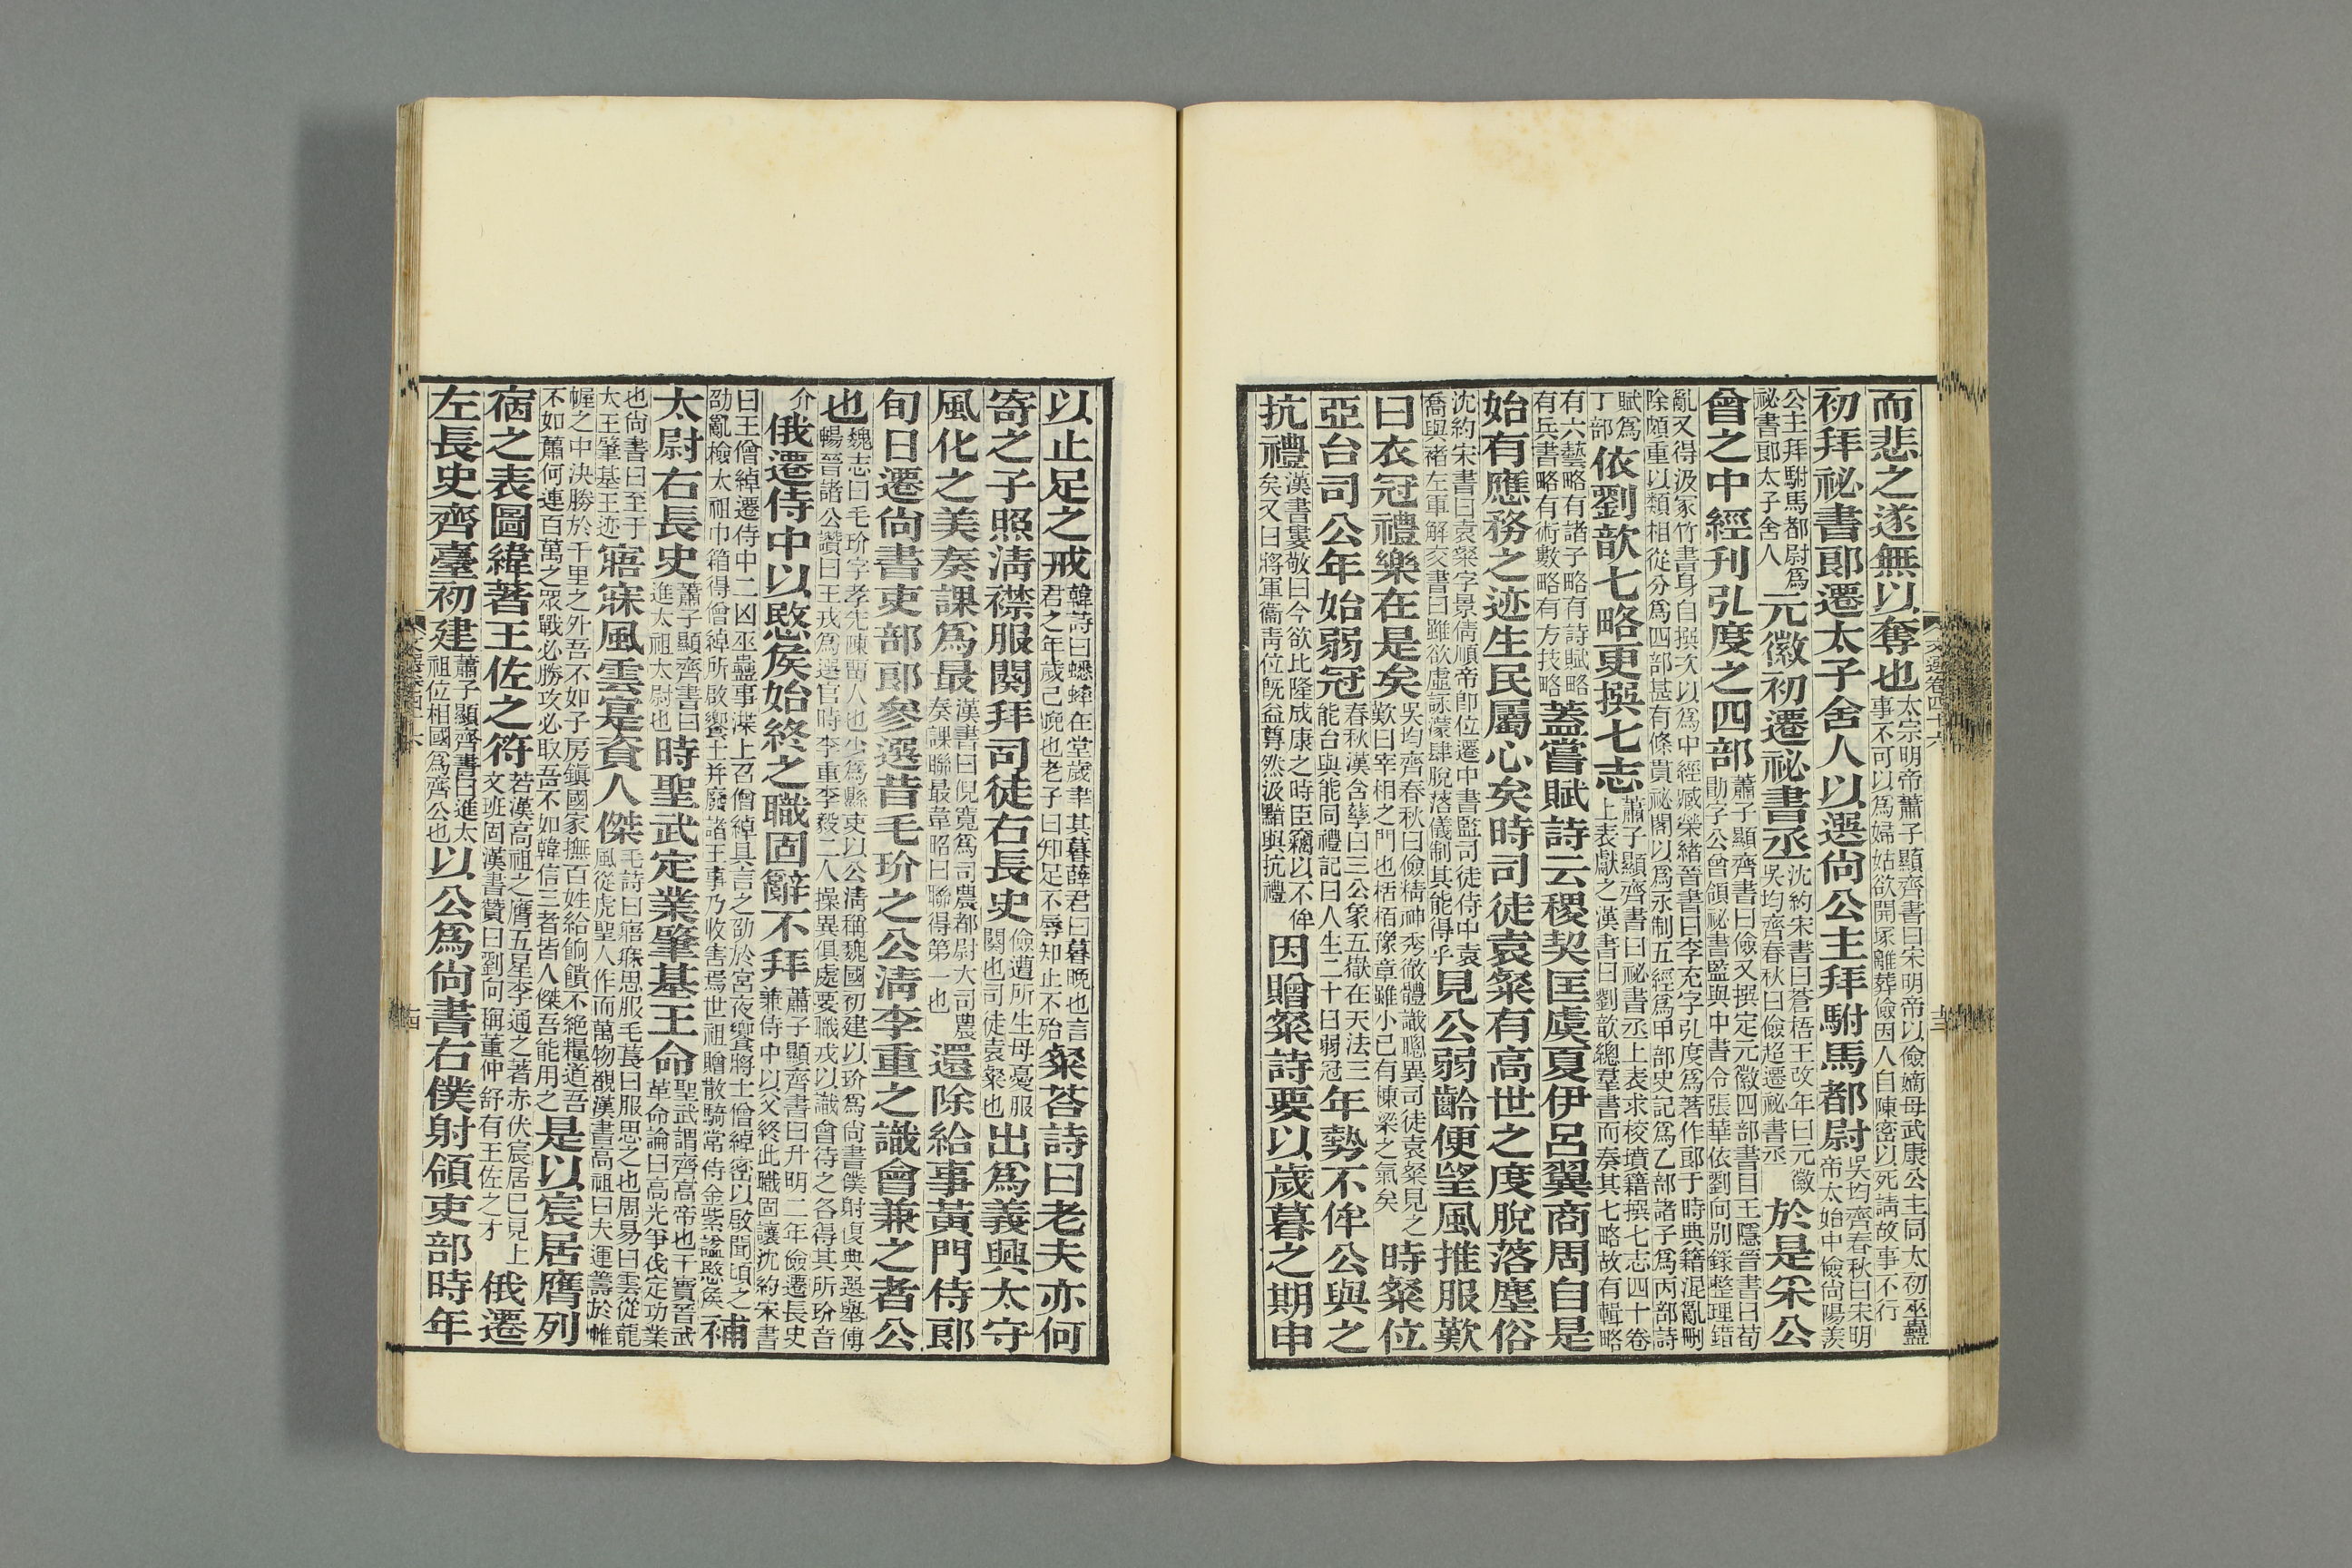 而悲之遂無以奪也太宗明帝蕭子顯齊書曰宋明帝以儉嫡母武康公主同太初巫蠱
事不可以為婦姑欲開冢離葬儉因人自陳密以死請故事不行
初拜祕書郎遷太子舍人以選尚公主拜駙馬都尉吳均齊春秋曰宋明
帝太始中儉尚陽羨
公主拜駙馬都尉為
祕書郎太子舍人元徽初遷祕書丞沈約宋書曰蒼梧王改年曰元徽
吳均齊春秋曰儉超遷祕書丞於是采公
曾之中經刊弘度之四部蕭子顯齊書曰儉又撰定元徽四部書目王隱晉書曰荀
勖字公曾領祕書監與中書令張華依劉向別錄整理錯
亂又得汲冢竹書身自撰次以為中經臧榮緒晉書曰李充字弘度為著作郎于時典籍混亂刪
除頗重以類相從分為四部甚有條貫祕閣以為永制五經為甲部史記為乙部諸子為丙部詩
賦為
丁部依劉歆七略更撰七志蕭子顯齊書曰祕書丞上表求校墳籍撰七志四十卷
上表獻之漢書曰劉歆總羣書而奏其七略故有輯略
有六藝略有諸子略有詩賦略
有兵書略有術數略有方技略蓋嘗賦詩云稷契匡虞夏伊呂翼商周自是
始有應務之迹生民屬心矣時司徒袁粲有高世之度脫落塵俗
沈約宋書曰袁粲字景倩順帝即位遷中書監司徒侍中袁
喬與褚左軍解交書曰雖欲虛詠濠肆脫落儀制其能得乎見公弱齡便望風推服歎
曰衣冠禮樂在是矣吳均齊春秋曰儉精神秀徹體識聰異司徒袁粲見之
歎曰宰相之門也栝栢豫章雖小已有棟梁之氣矣時粲位
亞台司公年始弱冠春秋漢含孳曰三公象五嶽在天法三
能台與能同禮記曰人生二十曰弱冠年勢不侔公與之
抗禮漢書婁敬曰今欲比隆成康之時臣竊以不侔
矣又曰將軍衞青位既益尊然汲黯與抗禮因贈粲詩要以歲暮之期申
以止足之戒韓詩曰蟋蟀在堂歲聿其暮薛君曰暮晚也言
君之年歲已晚也老子曰知足不辱知止不殆粲荅詩曰老夫亦何
寄之子照清襟服闋拜司徒右長史儉遭所生母憂服
闋也司徒袁粲也出為義興太守
風化之美奏課為最漢書曰倪寬為司農都尉大司農
奏課聯最韋昭曰聯得第一也還除給事黃門侍郎
旬日遷尚書吏部郎參選昔毛玠之公清李重之識會兼之者公
也魏志曰毛玠字孝先陳留人也少為縣吏以公清稱魏國初建以玠為尚書僕射復典選舉傅
暢晉諸公讚曰王戎為選官時李重李毅二人操異俱處要職戎以識會待之各得其所玠音
介俄遷侍中以愍侯始終之職固辭不拜蕭子顯齊書曰升明二年儉遷長史
兼侍中以父終此職固讓沈約宋書
曰王僧綽遷侍中二凶巫蠱事渫上召僧綽具言之劭於宮夜饗將士僧綽密以啟聞頃之
劭亂檢太祖巾箱得僧綽所啟饗士并廢諸王事乃收害焉世祖贈散騎常侍金紫謚愍侯補
太尉右長史蕭子顯齊書曰
進太祖太尉也時聖武定業肇基王命聖武謂齊高帝也干寶晉武
革命論曰高光爭伐定功業
也尚書曰至于
大王肇基王迹寤寐風雲寔資人傑毛詩曰寤寐思服毛萇曰服思之也周易曰雲從龍
風從虎聖人作而萬物覩漢書高祖曰夫運籌於帷
幄之中決勝於千里之外吾不如子房鎮國家撫百姓給餉饋不絕糧道吾
不如蕭何連百萬之眾戰必勝攻必取吾不如韓信三者皆人傑吾能用之是以宸居膺列
宿之表圖緯著王佐之符若漢高祖之膺五星李通之著赤伏宸居已見上
文班固漢書贊曰劉向稱董仲舒有王佐之才俄遷
左長史齊臺初建蕭子顯齊書曰進太
祖位相國為齊公也以公為尚書右僕射領吏部時年
文選卷四十六
十三
十四